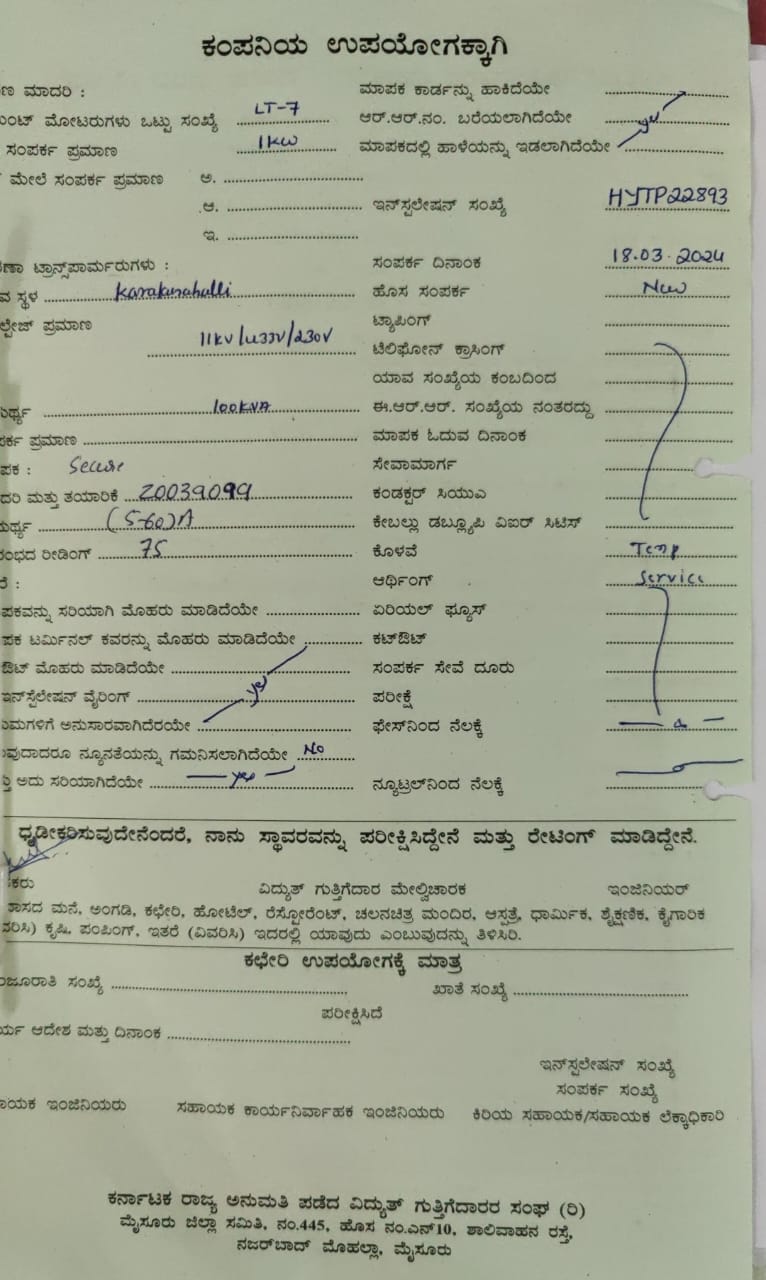 ಕಂಪನಿಯ ಉಪಯೋಗಕ್ಕಾಗಿ
ಣ ಮಾದರಿ : ಮಾಪಕ ಕಾರ್ಡನ್ನು ಹಾಕಿದೆಯೇ
ಮೋಟರುಗಳು ಒಟ್ಟು ಸಂಖ್ಯೆ LT-7 ಆರ್.ಆರ್.ನಂ. ಬರೆಯಲಾಗಿದೆಯೇ yes
ಸಂಪರ್ಕ ಪ್ರಮಾಣ 1KW ಮಾಪಕದಲ್ಲಿ ಹಾಳೆಯನ್ನು ಇಡಲಾಗಿದೆಯೇ
ಮೇಲೆ ಸಂಪರ್ಕ ಪ್ರಮಾಣ ಅ.
ಆ. ಇನ್‌ಸ್ಪಲೇಷನ್ ಸಂಖ್ಯೆ HYTP22893
ಇ.
ಣಾ ಟ್ರಾನ್ಸ್‌ಪಾರ್ಮರುಗಳು : ಸಂಪರ್ಕ ದಿನಾಂಕ 18.03.2024
ವ ಸ್ಥಳ ಹೊಸ ಸಂಪರ್ಕ New
ಲ್ಟೇಜ್ ಪ್ರಮಾಣ 11KV/433V/230V ಟ್ಯಾಪಿಂಗ್
ಟೆಲಿಫೋನ್ ಕ್ರಾಸಿಂಗ್
ಯಾವ ಸಂಖ್ಯೆಯ ಕಂಬದಿಂದ
ರ್ಥ್ಯ 100KVA ಈ.ಆರ್.ಆರ್. ಸಂಖ್ಯೆಯ ನಂತರದ್ದು
ರ್ಕ ಪ್ರಮಾಣ ಮಾಪಕ ಓದುವ ದಿನಾಂಕ
ಪಕ : Secure ಸೇವಾಮಾರ್ಗ
ದರಿ ಮತ್ತು ತಯಾರಿಕೆ 20039099 ಕಂಡಕ್ಟರ್ ಸಿಯುಎ
ರ್ಥ್ಯ (5-60)A ಕೇಬಲ್ಲು ಡಬ್ಲ್ಯೂಪಿ ವಿಐರ್ ಸಿಟಿಸ್
ರಂಭದ ರೀಡಿಂಗ್ 75 ಕೊಳವೆ Temp
ರೆ : ಆರ್ಥಿಂಗ್ Service
ಪಕವನ್ನು ಸರಿಯಾಗಿ ಮೊಹರು ಮಾಡಿದೆಯೇ ಏರಿಯಲ್ ಫ್ಯೂಸ್
ಪಕ ಟರ್ಮಿನಲ್ ಕವರನ್ನು ಮೊಹರು ಮಾಡಿದೆಯೇ ಕಟ್‌ಔಟ್
ಔಟ್ ಮೊಹರು ಮಾಡಿದೆಯೇ ಸಂಪರ್ಕ ಸೇವೆ ದೂರು
ಇನ್‌ಸ್ಪೆಲೇಷನ್ ವೈರಿಂಗ್ yes ಪರೀಕ್ಷೆ
ಮಗಳಿಗೆ ಅನುಸಾರವಾಗಿದೆರಯೇ ಫೇಸ್‌ನಿಂದ ನೆಲಕ್ಕೆ
ವುದಾದರೂ ನ್ಯೂನತೆಯನ್ನು ಗಮನಿಸಲಾಗಿದೆಯೇ No
ಅದು ಸರಿಯಾಗಿದೆಯೇ yes ನ್ಯೂಟ್ರಲ್‌ನಿಂದ ನೆಲಕ್ಕೆ
ಧೃಡೀಕರಿಸುವುದೇನೆಂದರೆ, ನಾನು ಸ್ಥಾವರವನ್ನು ಪರೀಕ್ಷಿಸಿದ್ದೇನೆ ಮತ್ತು ರೇಟಿಂಗ್ ಮಾಡಿದ್ದೇನೆ.
ಕರು ವಿದ್ಯುತ್ ಗುತ್ತಿಗೆದಾರ ಮೇಲ್ವಿಚಾರಕ ಇಂಜಿನಿಯರ್
ಾಸದ ಮನೆ, ಅಂಗಡಿ, ಕಛೇರಿ, ಹೋಟೆಲ್, ರೆಸ್ಟೋರೆಂಟ್, ಚಲನಚಿತ್ರ ಮಂದಿರ, ಆಸ್ಪತ್ರೆ, ಧಾರ್ಮಿಕ, ಶೈಕ್ಷಣಿಕ, ಕೈಗಾರಿಕ
ವರಿಸಿ) ಕೃಷಿ, ಪಂಪಿಂಗ್, ಇತರೆ (ವಿವರಿಸಿ) ಇದರಲ್ಲಿ ಯಾವುದು ಎಂಬುವುದನ್ನು ತಿಳಿಸಿರಿ.
ಕಛೇರಿ ಉಪಯೋಗಕ್ಕೆ ಮಾತ್ರ
ಂಜೂರಾತಿ ಸಂಖ್ಯೆ ಖಾತೆ ಸಂಖ್ಯೆ
ಪರೀಕ್ಷಿಸಿದೆ
ರ್ಯ ಆದೇಶ ಮತ್ತು ದಿನಾಂಕ
ಇನ್‌ಸ್ಪಲೇಷನ್ ಸಂಖ್ಯೆ
ಸಂಪರ್ಕ ಸಂಖ್ಯೆ
ಾಯಕ ಇಂಜಿನಿಯರು ಸಹಾಯಕ ಕಾರ್ಯನಿರ್ವಾಹಕ ಇಂಜಿನಿಯರು ಕಿರಿಯ ಸಹಾಯಕ/ಸಹಾಯಕ ಲೆಕ್ಕಾಧಿಕಾರಿ
ಕರ್ನಾಟಕ ರಾಜ್ಯ ಅನುಮತಿ ಪಡೆದ ವಿದ್ಯುತ್ ಗುತ್ತಿಗೆದಾರರ ಸಂಘ (ರಿ)
ಮೈಸೂರು ಜಿಲ್ಲಾ ಸಮಿತಿ, ನಂ.445, ಹೊಸ ನಂ.ಎನ್10, ಶಾಲಿವಾಹನ ರಸ್ತೆ,
ನಜರ್‌ಬಾದ್ ಮೊಹಲ್ಲಾ, ಮೈಸೂರು